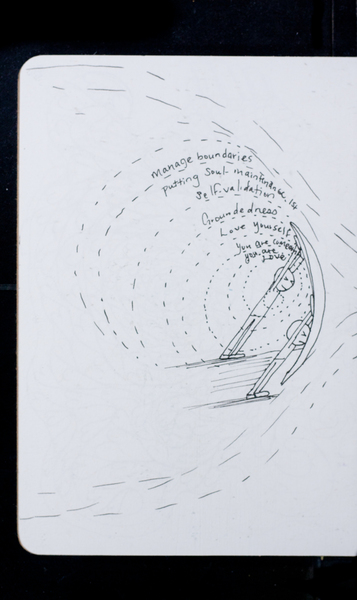 manage boundaries
putting Soul maintenance 1st
Self-validation
Groundedness
Love yourself
you are
you are
Love